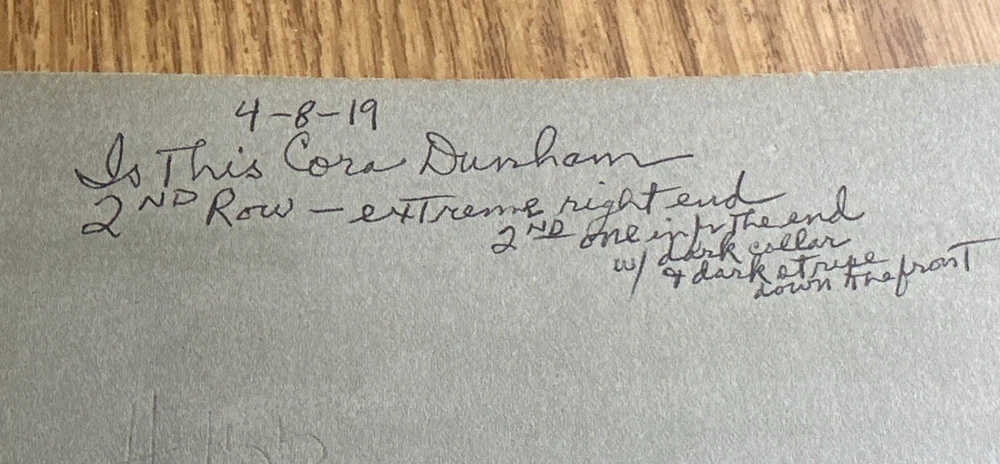 4-8-19
Is This Cora Dunham
2ND Row - extreme right end
2ND one in fr the end
w/ dark collar
& dark stripe
down the front